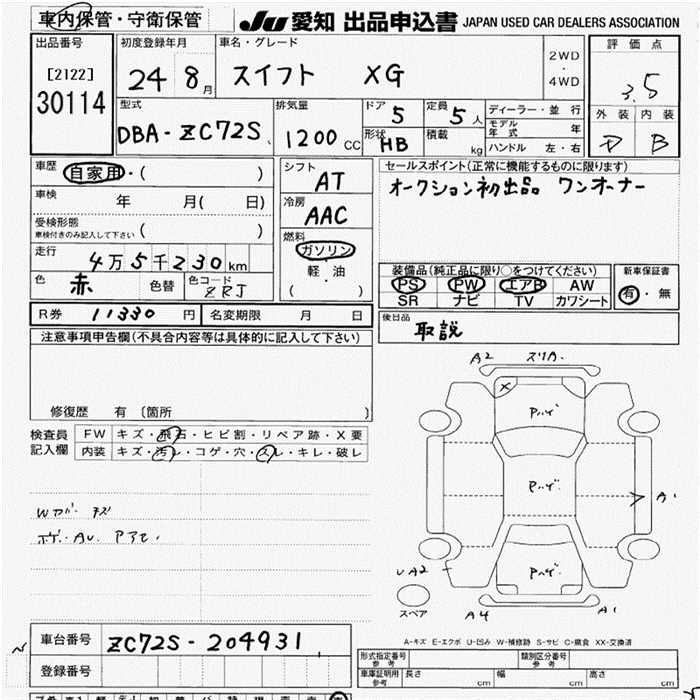 車内保管・守衛保管 JU 愛知 出品申込書 JAPAN USED CAR DEALERS ASSOCIATION
出品番号 初度登録年月 車名・グレード 評価点
[2122] 30114 24 8月 スイフト XG 2WD・4WD 3.5
型式 排気量 ドア 5 定員 5人 ディーラー・並行 外装 内装
DBA-ZC72S 1200CC 形状 HB 積載 kg モデル年式 年 B
ハンドル 左・右
車歴 自家用・( ) シフト AT セールスポイント(正常に機能するものに限ります)
車検 年 月( 日) 冷房 AAC オークション初出品 ワンオーナー
受検形態 車検付きのみ記入して下さい ( ) 燃料 ガソリン 軽・油 ( )
走行 4万5千230km 装備品(純正品に限り○をつけてください) 新車保証書
色 赤 色替 色コード ZRJ PS PW エアB AW 有・無
SR ナビ TV カワシート
R券 11330円 名変期限 月 日 後日品 取説
注意事項申告欄(不具合内容等は具体的に記入して下さい)
修復歴 有 〔箇所 〕
検査員記入欄 FW キズ・飛石・ヒビ割・リペア跡・X要
内装 キズ・汚レ・コゲ・穴・スレ・キレ・破レ
A2 スリA.
X
Pハゲ.
Pハゲ.
A1
Pハゲ.
UA2
スペア A4 A1
A-キズ E-エクボ U-凹み W-補修跡 S-サビ C-腐食 XX-交換済
車台番号 ZC72S-204931
登録番号
形式指定番号 参考 類別区分番号 参考
車庫証明用 参考 長さ cm 幅 cm 高さ cm